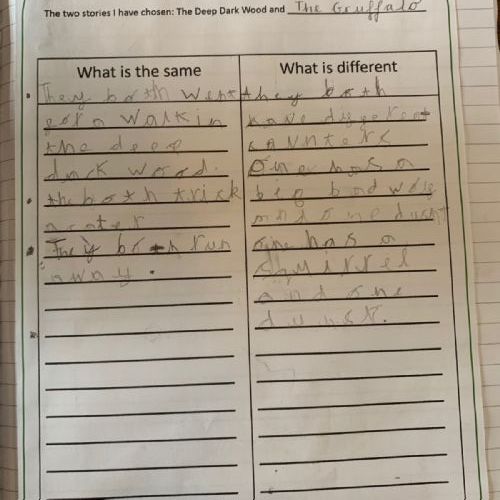 The two stories I have chosen: The Deep Dark Wood and The Gruffalo
What is the same
They both went
for a walk in
the deep
dark wood.
the both trick
They both run
away.
What is different
they both
have
One has a
big bad
and one dusnt
one has a
squirrel
and one
dunst.